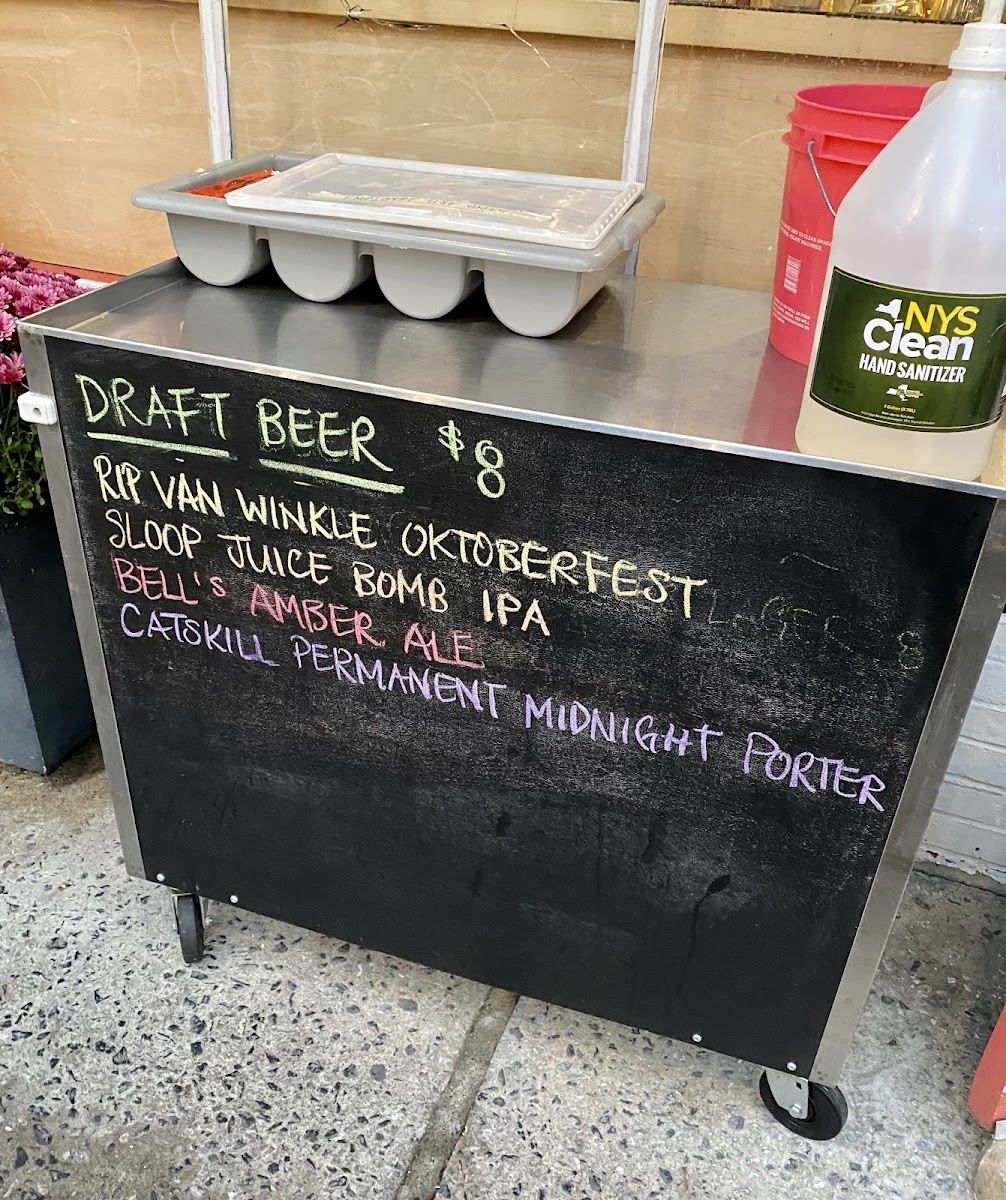 EMPLOYEE USE ONLY
NYS
Clean
HAND SANITIZER
DRAFT BEER $8
RIP VAN WINKLE OKTOBERFEST
SLOOP JUICE BOMB IPA
BELL'S AMBER ALE
CATSKILL PERMANENT MIDNIGHT PORTER